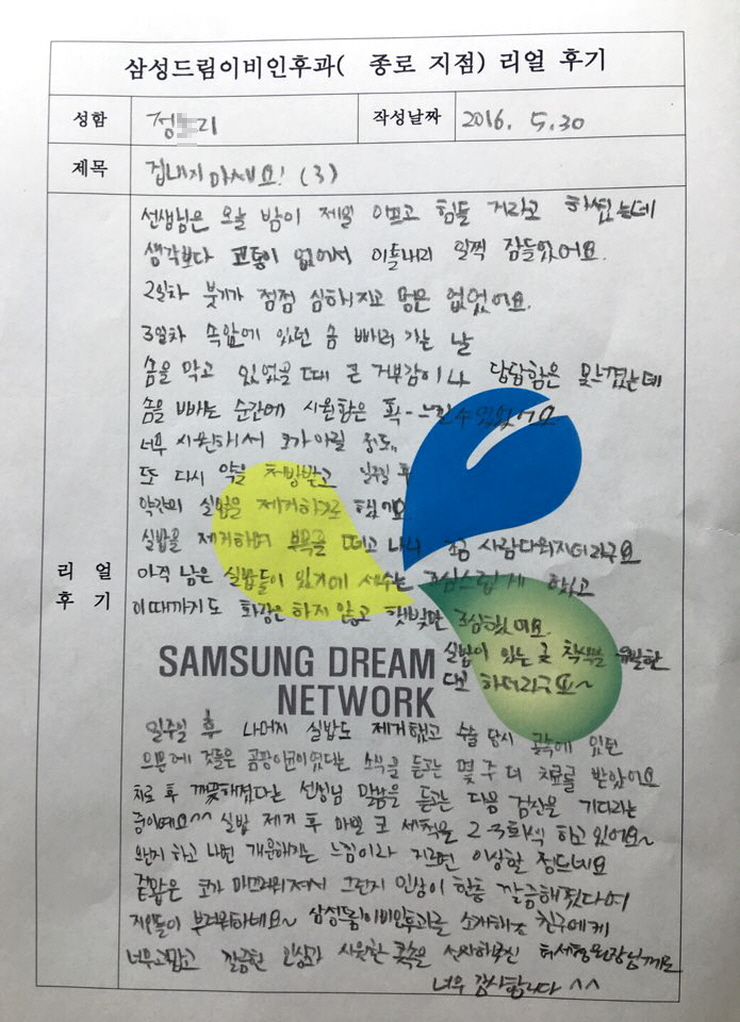 삼성드림이비인후과( 종로 지점) 리얼 후기
성함 정 리 작성날짜 2016. 5.30
제목 겁내지 마세요! (3)
선생님은 오늘 밤이 제일 아프고 힘들 거라고 하셨는데
생각보다 고통이 없어서 이틀내리 일찍 잠들었어요.
2일차 붓기가 점점 심해지고 멍은 없었어요.
3일차 속안에 있던 솜 빼러 가는 날
솜을 막고 있었을 때 큰 거부감이나 답답함은 못느꼈는데
솜을 빼는 순간에 시원함은 확- 느낄수있었어요
너무 시원해서 코가 아릴 정도..
또 다시 약을 처방받고 일주일 후
약간의 실밥을 제거하고 했어요
실밥을 제거하며 부목을 떼고 나니 조금 사람다워지더라구요
아직 남은 실밥들이 있기에 세수는 조심스럽게 했고
이때까지도 화장은 하지 않고 햇빛만 조심했어요.
실밥이 있는 곳 착색을 유발한
다고 하더라구요~
SAMSUNG DREAM
NETWORK
리얼
후기
일주일 후 나머지 실밥도 제거했고 수술 당시 콧속에 있던
의문에 것들은 곰팡이균이었다는 소식을 듣고는 몇 주 더 치료를 받았어요
치료 후 깨끗해졌다는 선생님 말씀을 듣고는 다음 검진을 기다리는
중이에요^^ 실밥 제거 후 매일 코 세척을 2-3회씩 하고 있어요~
왠지 하고 나면 개운해지는 느낌이라 지르면 이상할 정도네요
겉모습은 코가 매끄러워져서 그런지 인상이 한층 깔끔해졌다며
지인들이 부러워하네요~ 삼성드림이비인후과를 소개해준 친구에게
너무고맙고 깔끔한 인상과 시원한 콧속을 선사하신 원장님께도
너무 감사합니다 ^^